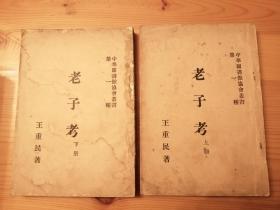 中華圖書館協會叢書
第一種
老子考
上册
王重民著
中華圖書館協會叢書
第一種
老子考
下册
王重民著